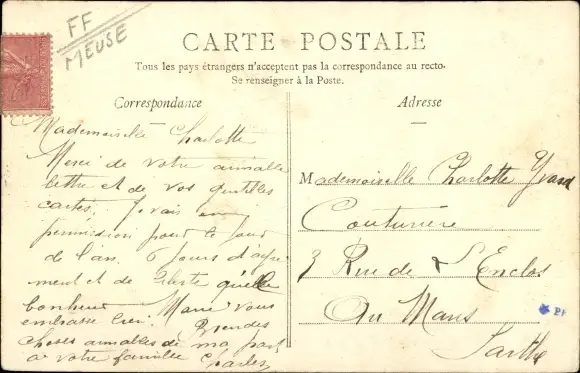 FF
MEUSE
CARTE POSTALE
Tous les pays étrangers n'acceptent pas la correspondance au recto.
Se renseigner à la Poste.
Correspondance
Mademoiselle Charlotte
Merci de votre aimable
lettre et de vos gentilles
cartes. Je vais en
permission pour le jour
de l'an. 6 jours
ment et de reste quelle
bonheur Marie vous
embrasse Prendes
choses aimables de ma part
a votre famille Charles
Adresse
Mademoiselle Charlotte Yvard
Couturière
3 Rue de L'Enclos
Au Mans
Sarthe